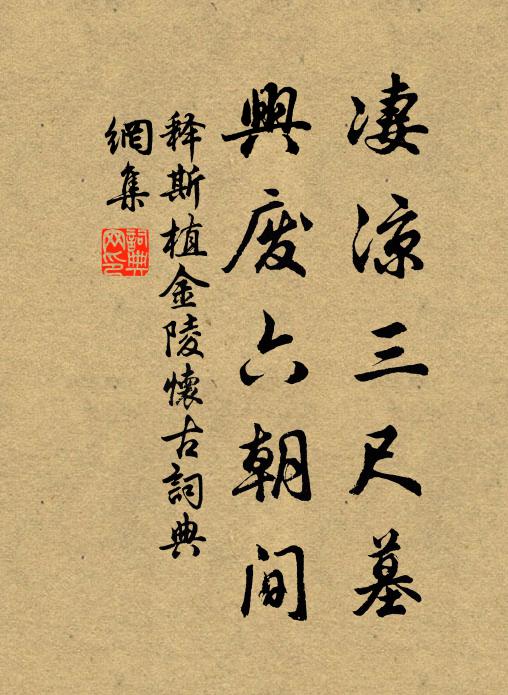 凄凉三尺墓
興废六朝间
释斯植金陵懷古詞典
網集
詞典
网印